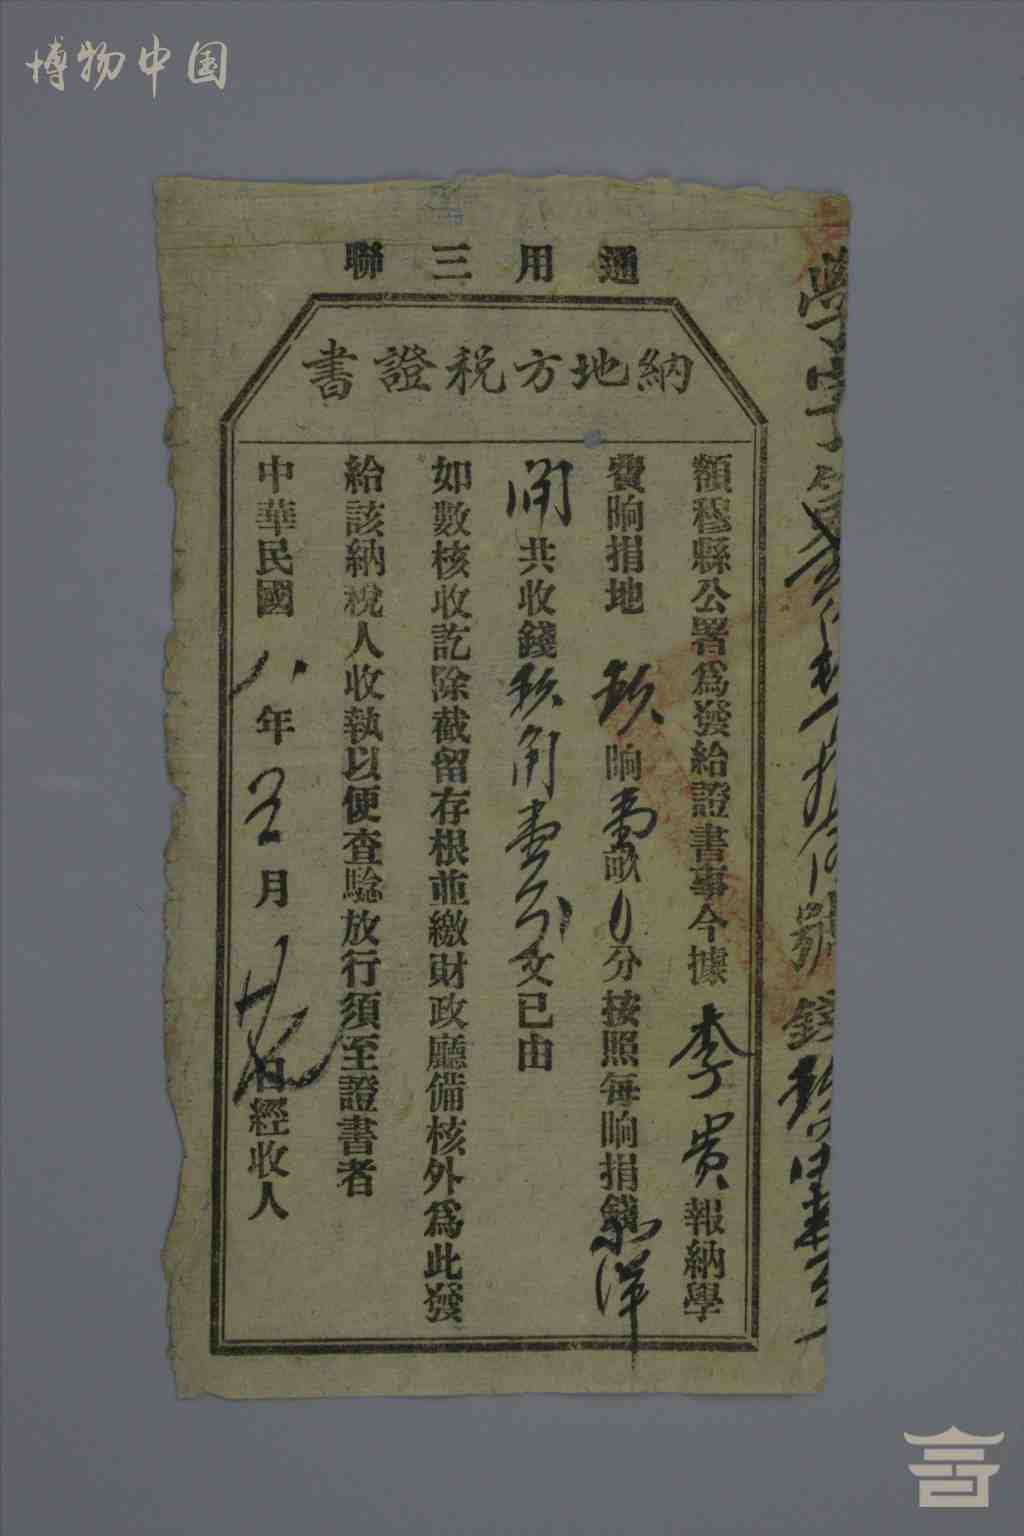 博物中国
通用三聯
納地方税證書
學字第
號
額穆縣公署爲發給證書事今據李贵報納學
費晌捐地玖晌壹畝分按照每晌捐錢小洋
角共收錢玖角壹分文已由
如數核收訖除截留存根並繳財政廳備核外爲此發
給該納税人收執以便查驗放行須至證書者
中華民國八年五月廿九日經收人